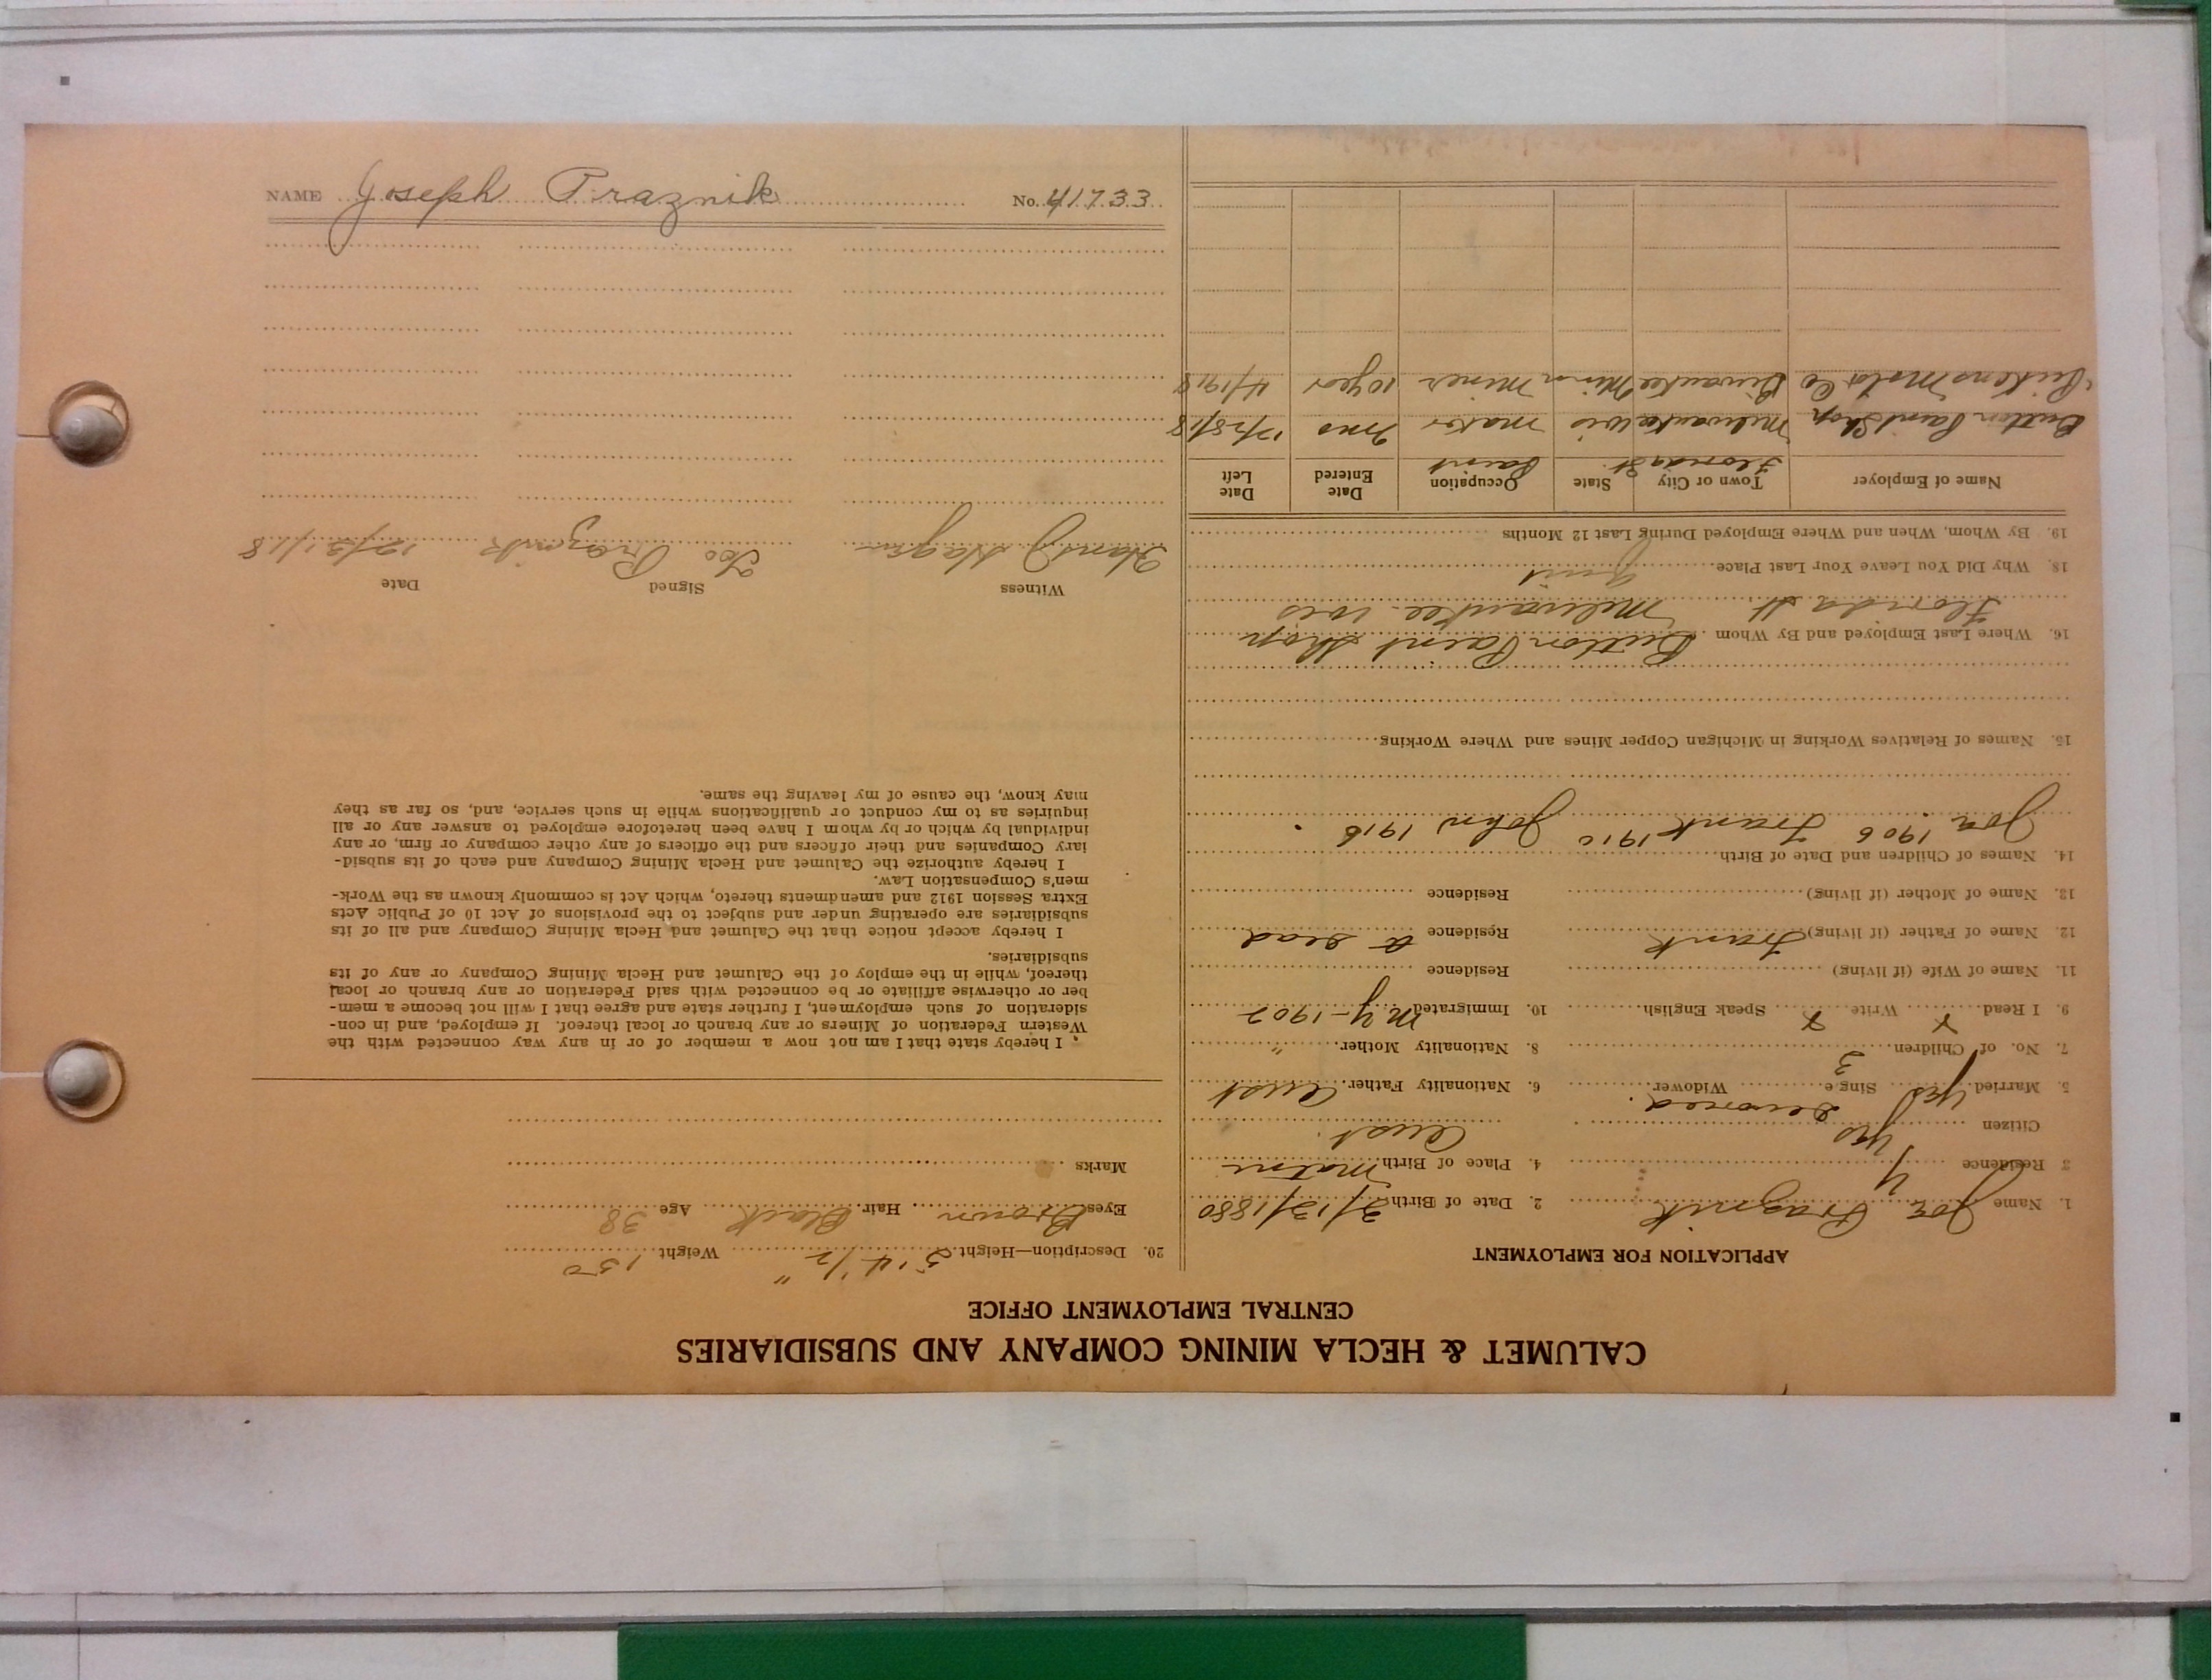 NAME Joseph Praznik No. 41733
CALUMET & HECLA MINING COMPANY AND SUBSIDIARIES
CENTRAL EMPLOYMENT OFFICE
APPLICATION FOR EMPLOYMENT
1. Name Joe Praznik 2. Date of Birth 3/13/1880
3 Residence 4. Place of Birth
Citizen yes Aust
divorced.
5. Married yes Single Widower 6. Nationality Father Aust
7. No. of Children 3 8. Nationality Mother "
9. I Read x Write x Speak English 10. Immigrated N Y - 1902
11. Name of Wife (if living) Residence
12. Name of Father (if living) Frank Residence dead
13. Name of Mother (if living) Residence
14. Names of Children and Date of Birth
Joe 1906 Frank 1910 John 1916
15. Names of Relatives Working in Michigan Copper Mines and Where Working
16. Where Last Employed and By Whom Button Paint Shop
Florida St. Milwaukee Wis
18. Why Did You Leave Your Last Place quit
19. By Whom, When and Where Employed During Last 12 Months
Name of Employer Town or City State Occupation Date Entered Date Left
Florida St. Paint
Button Paint Shop Milwaukee Wis maker 7 mo 12/28/18
Miner 10 year 4/1918
20. Description—Height 5' 4 1/2" Weight 150
Eyes Brown Hair Black Age 38
Marks
I hereby state that I am not now a member of or in any way connected with the
Western Federation of Miners or any branch or local thereof. If employed, and in con-
sideration of such employment, I further state and agree that I will not become a mem-
ber or otherwise affiliate or be connected with said Federation or any branch or local
thereof, while in the employ of the Calumet and Hecla Mining Company or any of its
subsidiaries.
I hereby accept notice that the Calumet and Hecla Mining Company and all of its
subsidiaries are operating under and subject to the provisions of Act 10 of Public Acts
Extra Session 1912 and amendments thereto, which Act is commonly known as the Work-
men's Compensation Law.
I hereby authorize the Calumet and Hecla Mining Company and each of its subsid-
iary Companies and their officers and the officers of any other company or firm, or any
individual by which or by whom I have been heretofore employed to answer any or all
inquiries as to my conduct or qualifications while in such service, and, so far as they
may know, the cause of my leaving the same.
Witness Signed Date
Joe Praznik 12/31/18